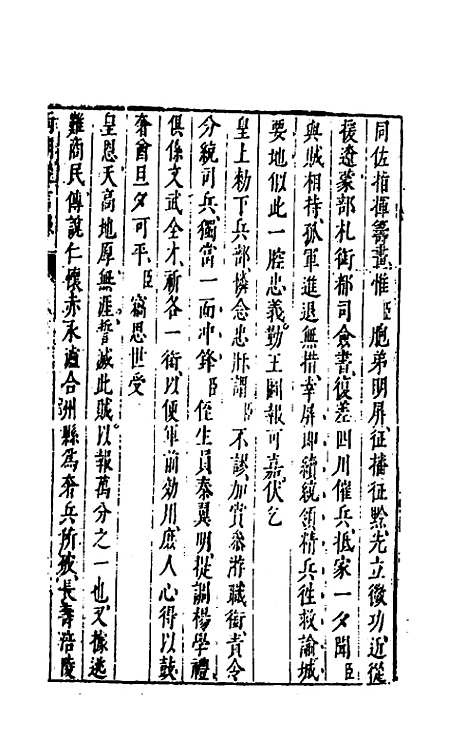 同佐指揮籌畫惟臣胞弟明屏征播征黔先立後功近從
援遼蒙部札銜都司僉書復差四川催兵抵家一夕聞臣
與賊相持孤軍進退無措幸屏即續統領精兵徃救諭城
要地似此一腔忠義勤王圖報可嘉伏乞
皇上勅下兵部憐念忠牀謂臣不謬加賞叅游職銜責令
分統司兵獨當一面冲鋒臣侄生員秦翼明從調楊學禮
俱係文武全才祈各一銜以便軍前効用庶人心得以鼓
奢酋旦夕可平臣竊思世受
皇恩天高地厚無涯誓滅此賊以報萬分之一也又據逃
難商民傳說仁懷赤永瀘合州縣爲奢兵所破長壽涪陵